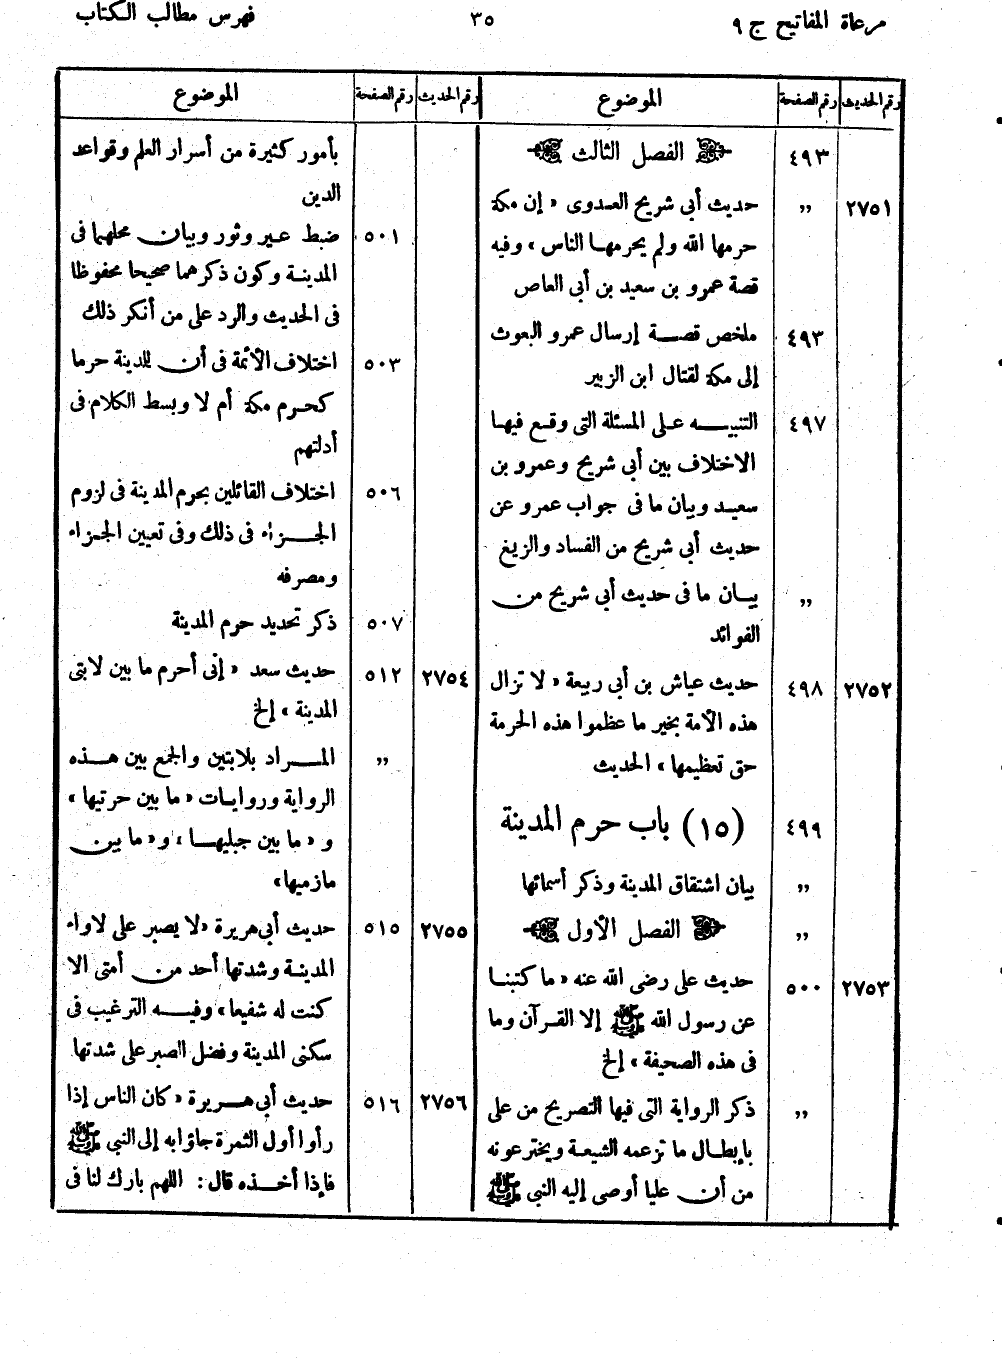 مرعاة المفاتيح ج ٩
٣٥
فهرس مطالب الكتاب
رقم الحديث رقم الصفحة الموضوع
٤٩٣ الفصل الثالث
٢٧٥١ ,, حديث أبى شريح العدوى « إن مكة
حرمها الله ولم يحرمها الناس » وفيه
قصة عمرو بن سعيد بن أبى العاص
٤٩٣ ملخص قصة إرسال عمرو البعوث
إلى مكة لقتال ابن الزبير
٤٩٧ التنبيه على المسئلة التى وقع فيها
الاختلاف بين أبى شريح وعمرو بن
سعيد وبيان ما فى جواب عمرو عن
حديث أبى شريح من الفساد والزيغ
,, بيان ما فى حديث أبى شريح من
الفوائد
٢٧٥٢ ٤٩٨ حديث عياش بن أبى ربيعة « لا تزال
هذه الأمة بخير ما عظموا هذه الحرمة
حق تعظيمها » الحديث
٤٩٩ (١٥) باب حرم المدينة
,, بيان اشتقاق المدينة وذكر أسمائها
,, الفصل الأول
٢٧٥٣ ٥٠٠ حديث على رضى الله عنه « ما كتبنا
عن رسول الله ﷺ إلا القرآن وما
فى هذه الصحيفة » إلخ
,, ذكر الرواية التى فيها التصريح من على
بإبطال ما تزعمه الشيعة ويخترعونه
من أن عليا أوصى إليه النبى ﷺ
رقم الحديث رقم الصفحة الموضوع
بأمور كثيرة من أسرار العلم وقواعد
الدين
٥٠١ ضبط عير وثور وبيان محلهما فى
المدينة وكون ذكرهما صحيحا محفوظا
فى الحديث والرد على من أنكر ذلك
٥٠٣ اختلاف الأئمة فى أن للمدينة حرما
كحرم مكة أم لا وبسط الكلام فى
أدلتهم
٥٠٦ اختلاف القائلين بحرم المدينة فى لزوم
الجزاء فى ذلك وفى تعيين الجزاء
ومصرفه
٥٠٧ ذكر تحديد حرم المدينة
٢٧٥٤ ٥١٢ حديث سعد « إنى أحرم ما بين لابتى
المدينة » إلخ
,, المراد بلابتين والجمع بين هذه
الرواية وروايات « ما بين حرتيها »
و « ما بين جبليها » و « ما بين
مازميها»
٢٧٥٥ ٥١٥ حديث أبى هريرة «لا يصبر على لاواء
المدينة وشدتها أحد من أمتى الا
كنت له شفيعا» وفيه الترغيب فى
سكنى المدينة وفضل الصبر على شدتها
٢٧٥٦ ٥١٦ حديث أبى هريرة « كان الناس إذا
رأوا أول الثمرة جاؤا به إلى النبى ﷺ
فإذا أخذه قال : اللهم بارك لنا فى